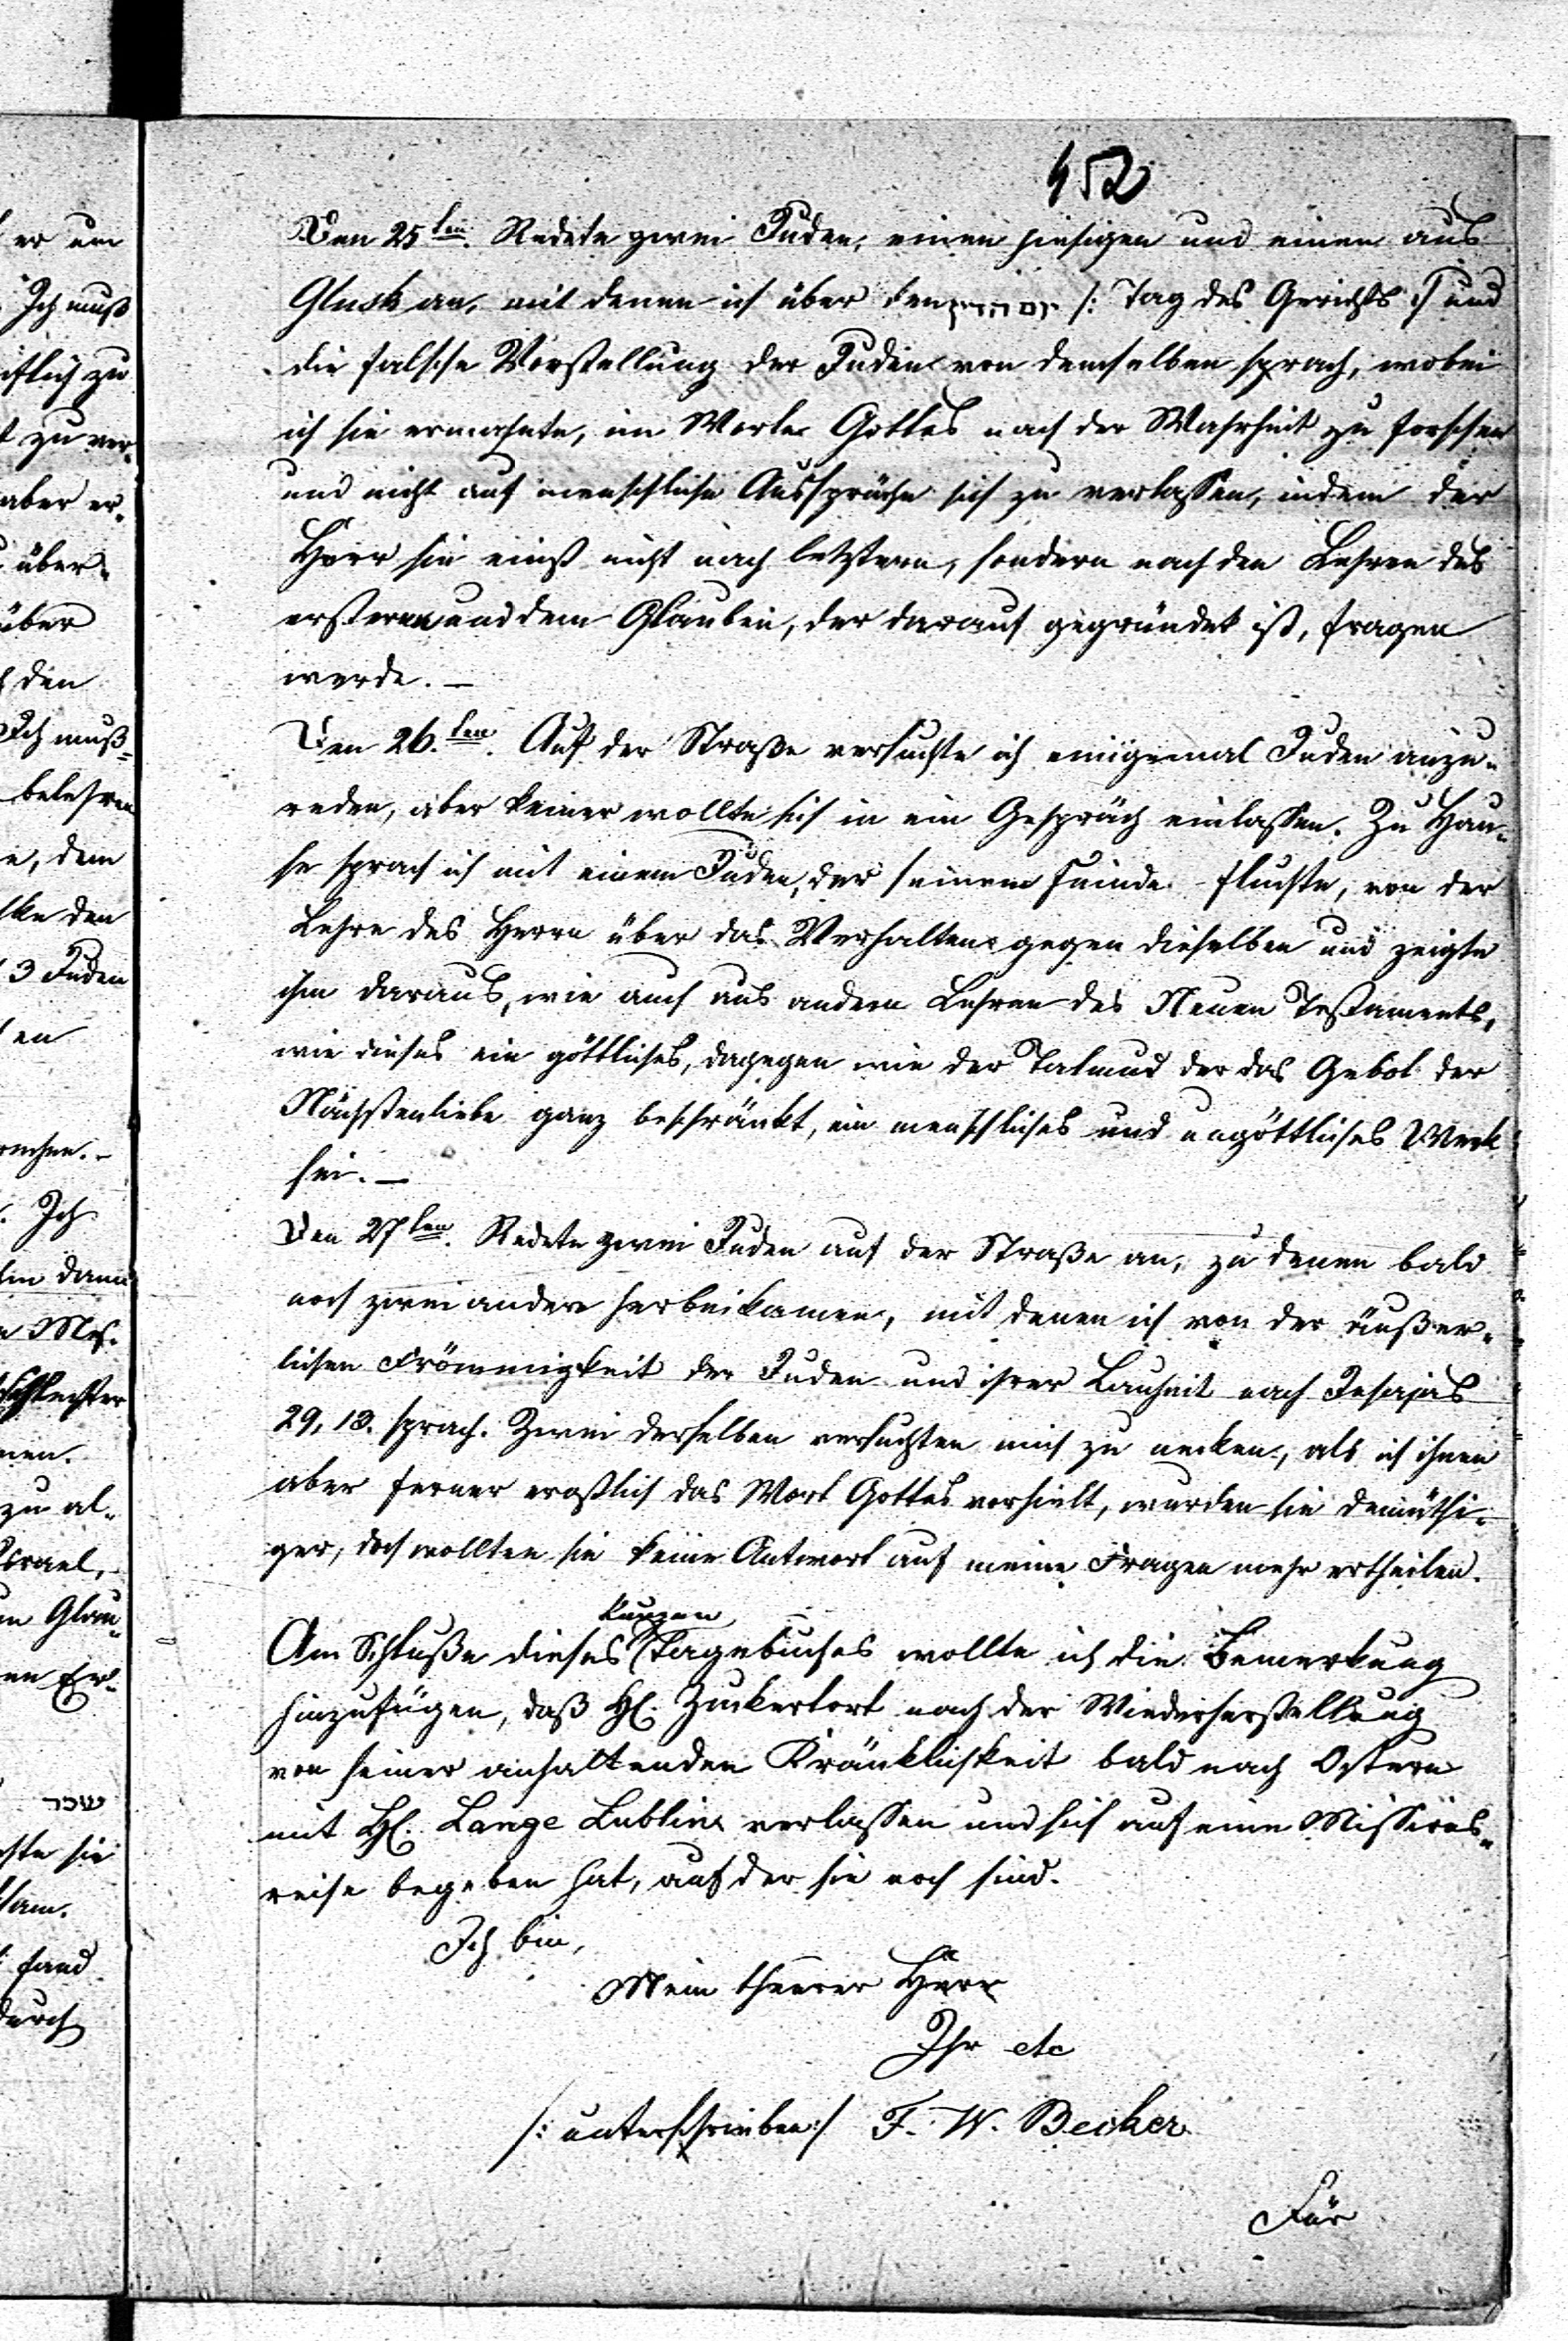 452
Den 25ten. Redete zwei Juden, einen hiesigen und einen aus
Glusk an, mit denen ich über den יום הדין /: Tag des Gerichts :/ und
die falsche Vorstellung der Juden von demselben sprach, wobei
ich sie ermahnte, im Worte Gottes nach der Wahrheit zu forschen
und nicht auf menschliche Aussprüche sich zu verlassen, indem der
Herr sie einst nicht nach letztern, sondern nach den Lehren des
ersteren und dem Glauben, der darauf gegründet ist, fragen
werde. —
Den 26.ten. Auf der Straße versuchte ich einigemal Juden anzu-
reden, aber keiner wollte sich in ein Gespräch einlassen. Zu Hau-
se sprach ich mit einem Juden, der seinem Feinde fluchte, von der
Lehre des Herrn über das Verhalten gegen dieselben und zeigte
ihm daraus, wie auch aus andern Lehren des Neuen Testaments,
wie dieses ein göttliches, dagegen wie der Talmud der das Gebot der
Nächstenliebe ganz beschränkt, ein menschliches und ungöttliches Werk
sei. —
Den 27ten. Redete zwei Juden auf der Straße an, zu denen bald
noch zwei andere herbeikamen, mit denen ich von der äußer-
lichen Frömmigkeit der Juden und ihrer Lauheit nach Jesajas
29, 13. sprach. Zwei derselben versuchten mich zu necken, als ich ihnen
aber ferner ernstlich das Wort Gottes vorhielt, wurden sie demüthi-
ger, doch wollten sie keine Antwort auf meine Fragen mehr ertheilen.
kurzen
Am Schluße dieses Tagebuches wollte ich die Bemerkung
hinzufügen, daß H. Zuckertort nach der Wiederherstellung
von seiner anhaltenden Kränklichkeit bald nach Ostern
mit H. Lange Lublin verlassen und sich auf eine Missions-
reise begeben hat, auf der sie noch sind.
Ich bin,
Mein theurer Herr
Ihr etc
/: unterschrieben :/ F. W. Becker
Für